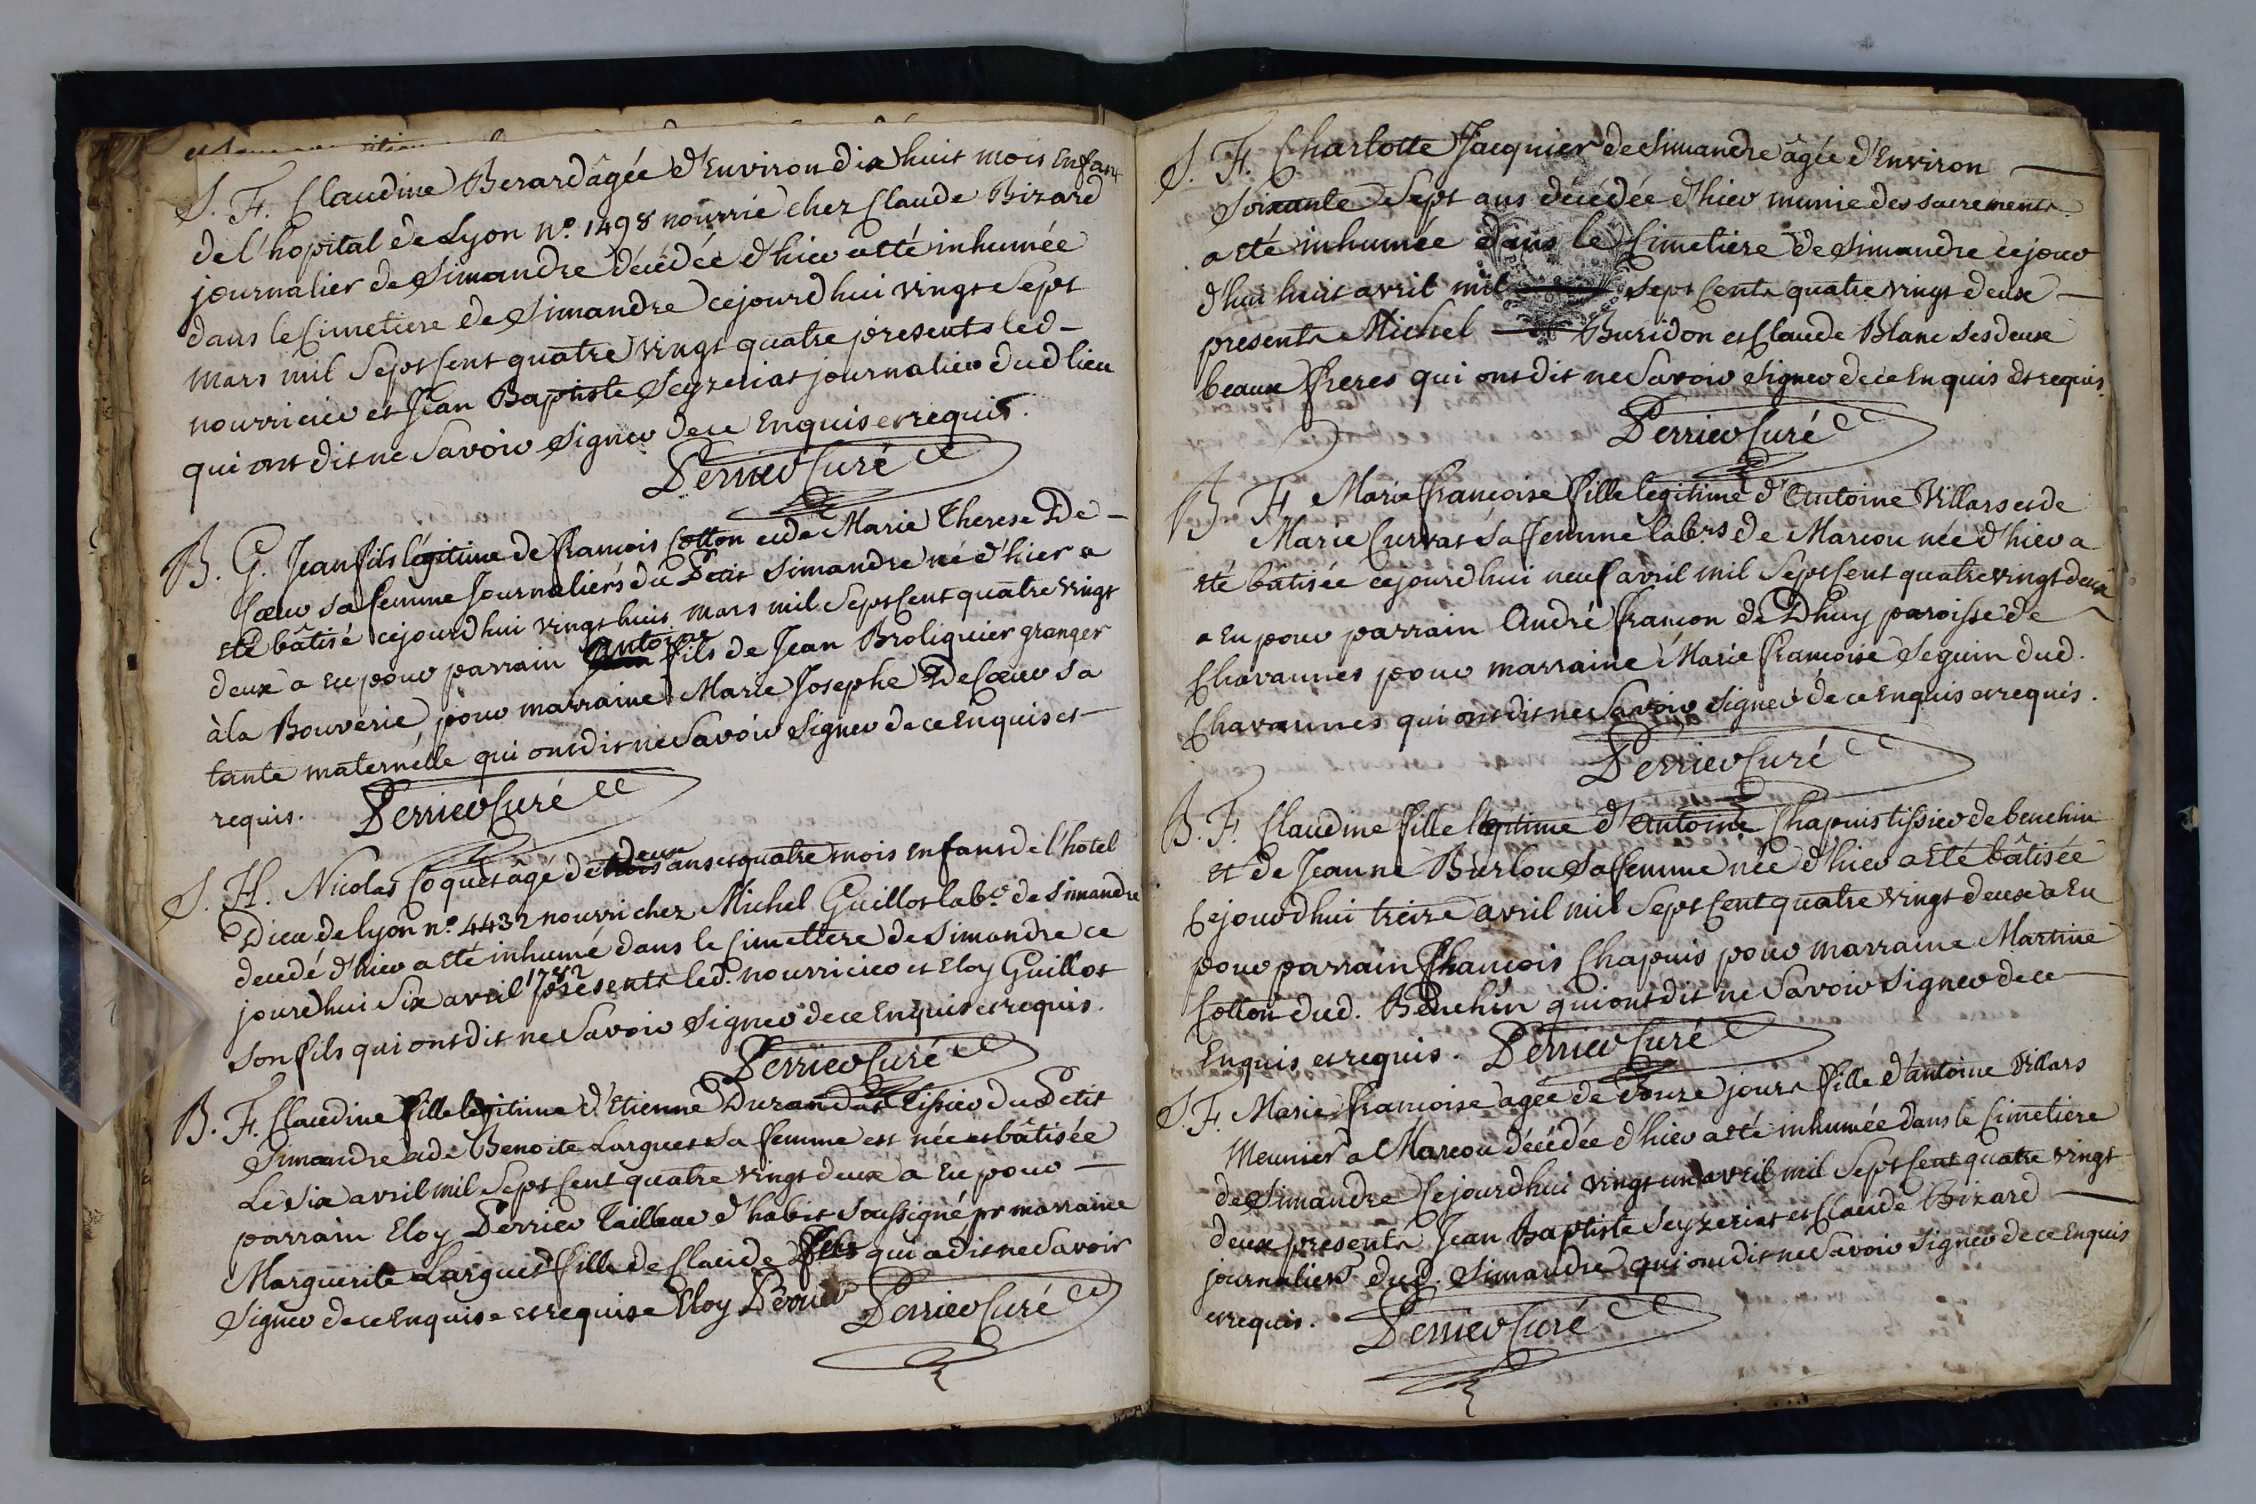 S. F. Claudine Berard âgée d'Environ dix huit mois Enfant
de l'hopital de Lyon n.º 1498 nourrie chez Claude Bizard
journalier de Simandre décédée d'hier a eté inhumée
dans le Cimetiere de Simandre cejourdhui vingt Sept
mars mil Sept Cent quatre vingt quatre présents led
nourricier et Jean Baptiste Seyzeriat journalier dud lieu
qui ont dit ne Savoir Signer de ce Enquis et requis.
Perrier Curé
B. G. Jean fils légitime de francois Cotton et de Marie Therese De
Cœur sa femme Journaliers du Petit Simandre né d'hier a
eté bâtisé cejourdhui vingt huit mars mil Sept Cent quatre vingt
deux a eu pour parrain Antoine fils de Jean Broliquier granger
à la Bouverie, pour marraine Marie Josephe De Cœur sa
tante maternelle qui ont dit ne Savoir Signer de ce Enquis et
requis. Perrier Curé
S. H. Nicolas Coquet âgé de deux ans et quatre mois enfant de l'hotel
Dieu de Lyon n.º 4432 nourri chez Michel Guillot lab.r de Simandre
decedé d'hier a eté inhumé dans le Cimettere de Simandre ce
jourdhui Six avril 1782 présents led. nourricier et Eloy Guillot
son fils qui ont dit ne Savoir Signer de ce Enquis et requis.
Perrier Curé
B. F. Claudine fille légitime d'Etienne Durandat tissier du Petit
Simandre et de Benoite Larguet sa femme est née et bâtisée
Le Six avril mil Sept Cent quatre vingt deux a Eu pour
parrain Eloy Perrier Tailleur d'habit Soussigné pr marraine
Marguerite Larguet fille de Claude qui a dit ne Savoir
Signer de ce Enquise et requise Eloy Perrier Perrier Curé
S. F. Charlotte Jacquier de Simandre âgée d'Environ
Soixante Sept ans décédée d'hier munie des sacrements
a eté inhumée dans le Cimetiere de Simandre cejour
d'hui huit avril mil Sept Cent quatre vingt deux
presents Michel Buridon et Claude Blanc ses deux
beaux freres qui ont dit ne Savoir Signer de ce Enquis et requis.
Perrier Curé
B F Marie francoise fille legitime d'Antoine Villars et de
Marie Curvat Sa femme labrs de Marcou née d'hier a
eté bâtisée cejourdhui neuf avril mil Sept Cent quatre vingt deux
a Eu pour parrain André francon de Dhuy paroisse de
Chavannes pour marraine Marie francoise Seguin dud.
Chavannes qui ont dit ne Savoir Signer de ce Enquis et requis.
Perrier Curé
B. F. Claudine fille legitime d'Antoine Chapuis tissier de benehin
et de Jeanne Burlou Sa femme née d'hier a Eté bâtisée
Cejourdhui treize avril mil Sept Cent quatre vingt deux a Eu
pour parrain francois Chapuis pour marraine Martine
Cotton dud. Benehin qui ont dit ne Savoir Signer de ce
Enquis et requis. Perrier Curé
S. F. Marie francoise agée de Douze jours fille d'antoine Villars
Meunier a Marcou décédée d'hier a eté inhumée dans le Cimetiere
de Simandre Cejourdhui vingt un avril mil Sept Cent quatre vingt
deux presents Jean Baptiste Seyzeriat et Claude Bizard
journaliers dud. Simandre qui ont dit ne Savoir Signer de ce Enquis
et requis. Perrier Curé